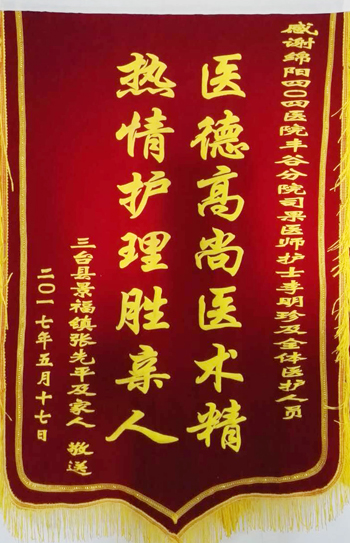 感谢绵阳四〇四医院丰谷分院司果医师护士李明珍及全体医护人员
医德高尚医术精
热情护理胜亲人
三台县景福镇张先平及家人 敬送
二〇一七年五月十七日